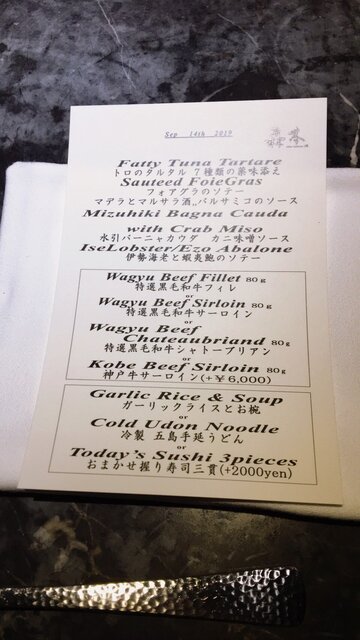 Sep 14th 2019
Fatty Tuna Tartare
トロのタルタル 7種類の薬味添え
Sauteed FoieGras
フォアグラのソテー
マデラとマルサラ酒,,バルサミコのソース
Mizuhiki Bagna Cauda
with Crab Miso
水引バーニャカウダ カニ味噌ソース
IseLobster/Ezo Abalone
伊勢海老と蝦夷鮑のソテー
Wagyu Beef Fillet 80g
特選黒毛和牛フィレ
or
Wagyu Beef Sirloin 80g
特選黒毛和牛サーロイン
or
Wagyu Beef
Chateaubriand 80g
特選黒毛和牛シャトーブリアン
or
Kobe Beef Sirloin 80g
神戸牛サーロイン(+¥6,000)
Garlic Rice & Soup
ガーリックライスとお椀
or
Cold Udon Noodle
冷製 五島手延うどん
or
Today's Sushi 3pieces
おまかせ握り寿司三貫(+2000yen)